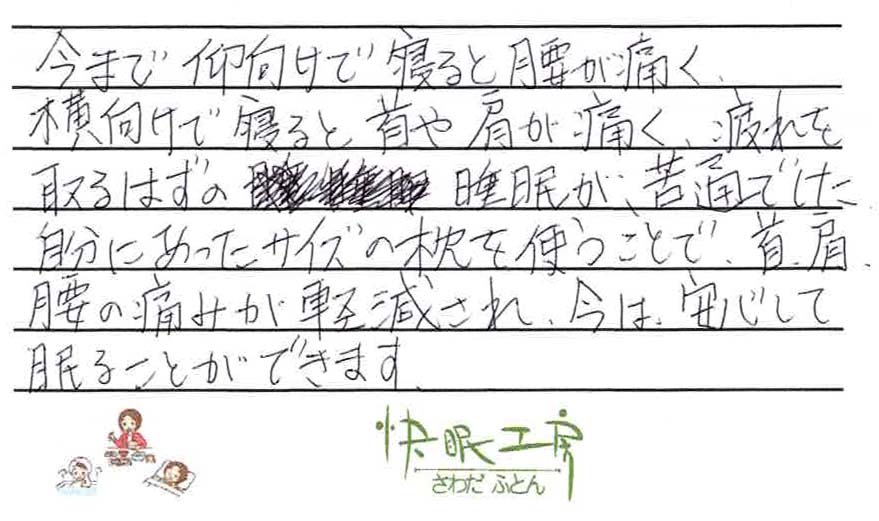 今まで仰向けで寝ると腰が痛く、
横向けで寝ると、首や肩が痛く、疲れを
取るはずの 睡眠が、苦通でした
自分にあったサイズの枕を使うことで、首、肩、
腰の痛みが軽減され、今は、安心して
眠ることができます。
快眠工房
さわだ ふとん